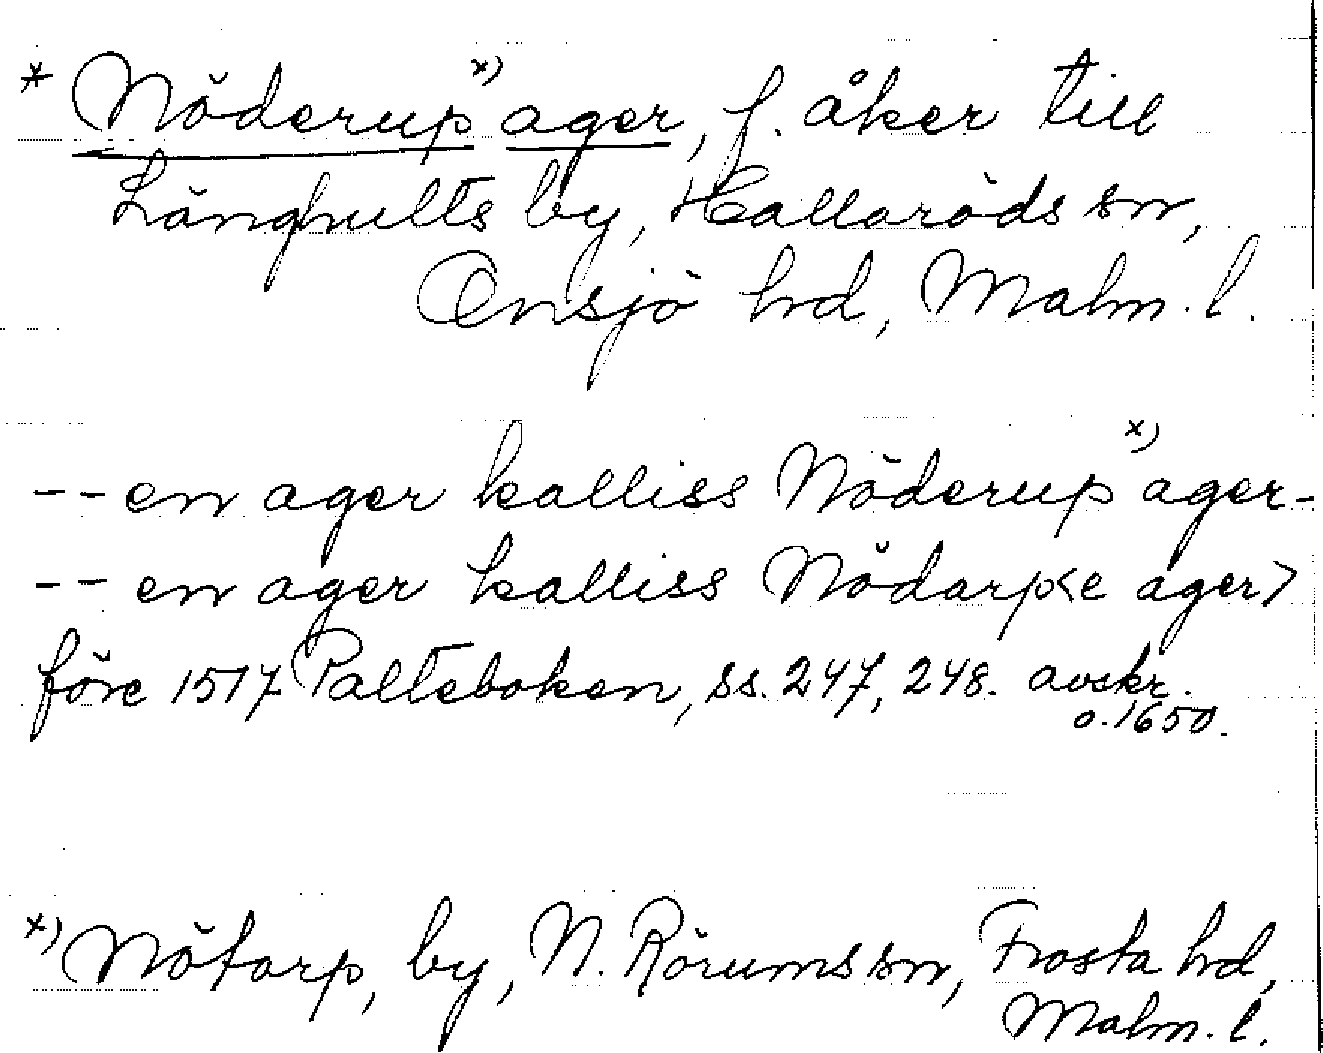 * Nöderup x) ager, f. åker till
Långhults by, Hallaröds sn,
Onsjö hd, Malm. l.
-- en ager kalliss Nöderup x) ager -
-- en ager kalliss Nödarp<e ager>
före 1517 Palteboken, ss. 247, 248. avskr.
o. 1650.
x) Nötarp, by, N. Rörums sn, Frosta hd,
Malm. l.